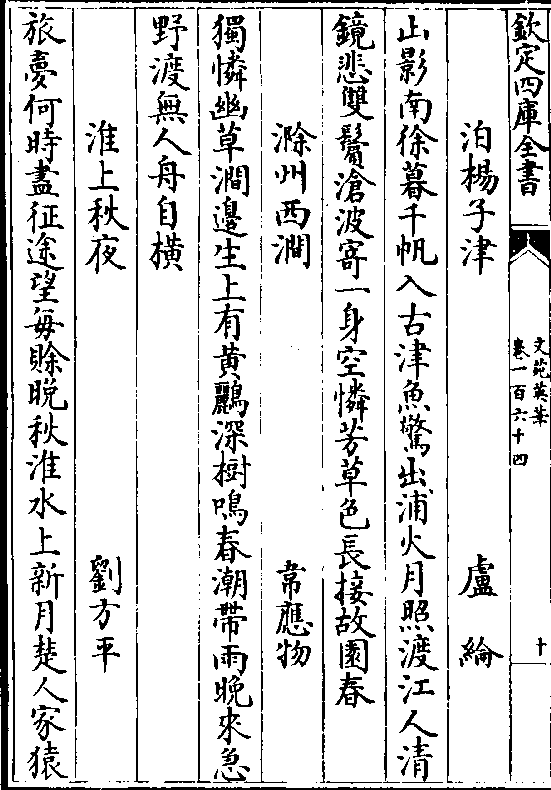 欽定四庫全書
文苑英華
卷一百六十四
十
泊楊子津 盧綸
山影南徐暮千帆入古津魚驚出浦火月照渡江人清
鏡悲雙鬢滄波寄一身空憐芳草色長接故園春
滁州西澗 韋應物
獨憐幽草澗邊生上有黄鸝深樹鳴春潮帶雨晚來急
野渡無人舟自橫
淮上秋夜 劉方平
旅夢何時盡征途望每賒晚秋淮水上新月楚人家猿